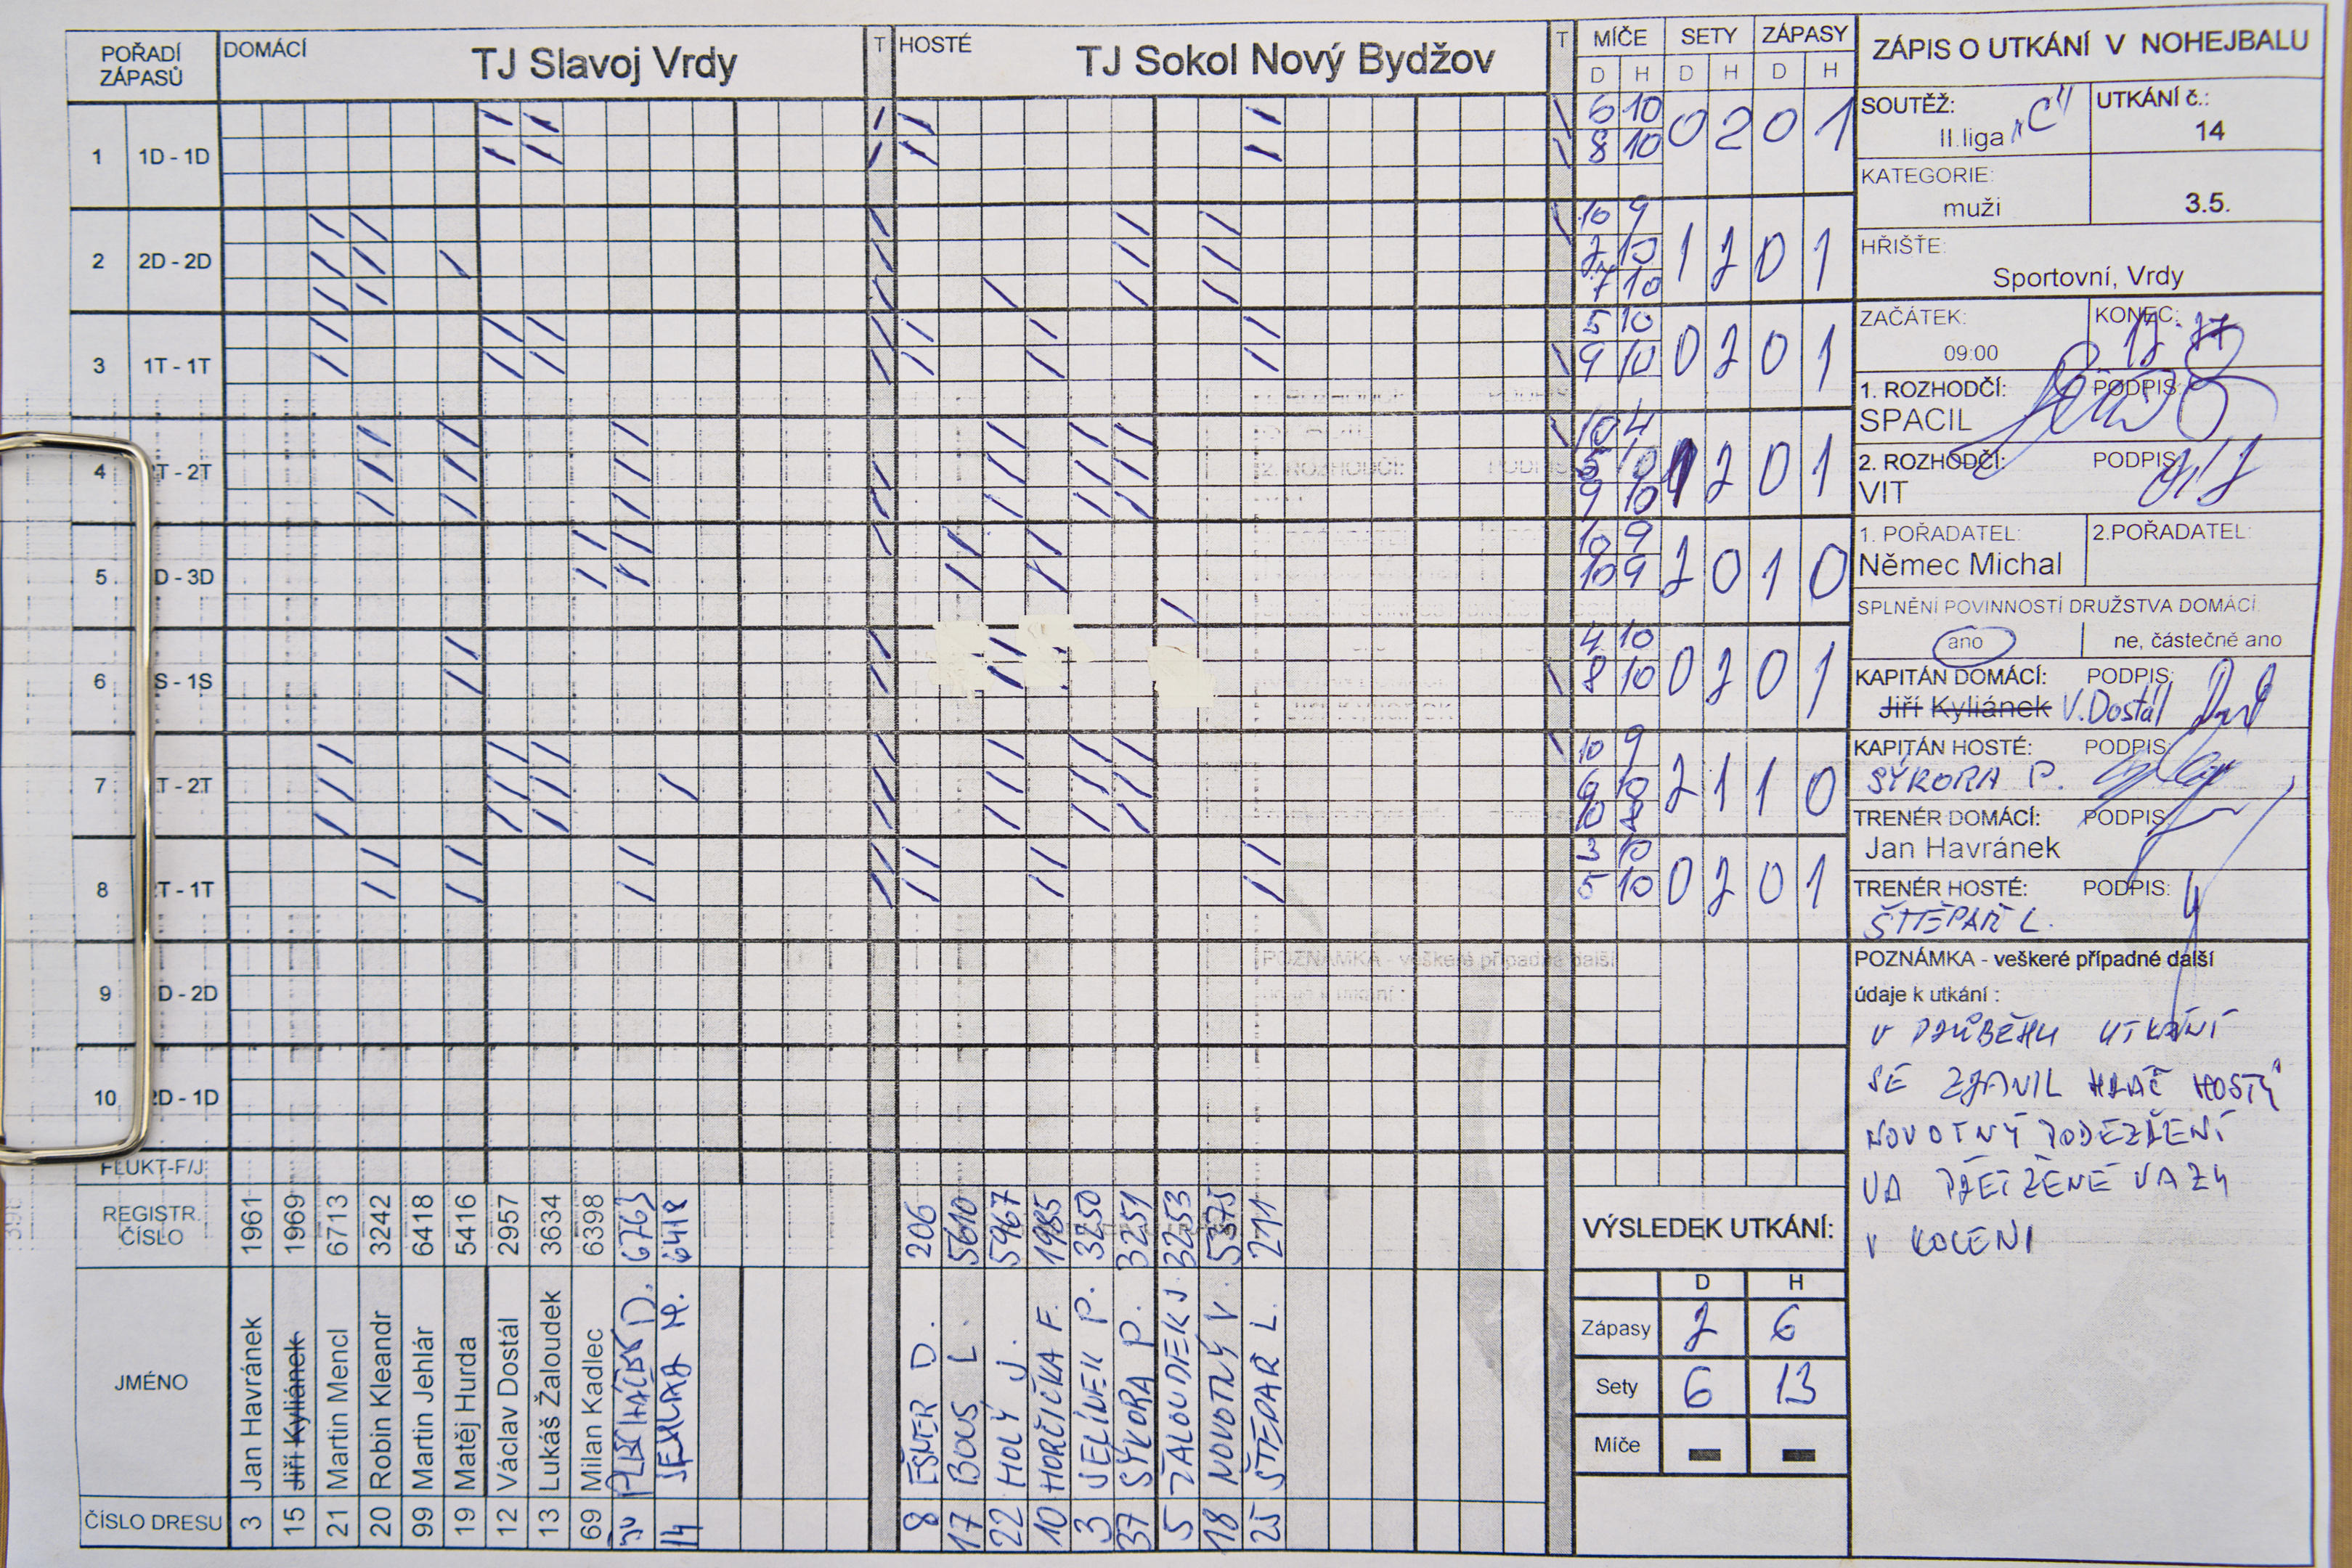 POŘADÍ ZÁPASŮ DOMÁCÍ TJ Slavoj Vrdy T HOSTÉ TJ Sokol Nový Bydžov T MÍČE SETY ZÁPASY
D H D H D H
1 1D - 1D 6 10 0 2 0 1
8 10
2 2D - 2D 10 9 1 2 0 1
2 10
7 10
3 1T - 1T 5 10 0 2 0 1
9 10
4 T - 2T 10 4 1 2 0 1
5 10
9 10
5 D - 3D 10 9 2 0 1 0
10 9
6 S - 1S 4 10 0 2 0 1
8 10
7 T - 2T 10 9 2 1 1 0
6 10
10 8
8 T - 1T 3 10 0 2 0 1
5 10
9 D - 2D
10 2D - 1D
FLUKT-F/J:
REGISTR. ČÍSLO 1961 1969 6713 3242 6418 5416 2957 3634 6398 6763 6418 206 5610 5967 1985 3250 3251 3253 5375 211
JMÉNO Jan Havránek Jiří Kyliánek Martin Mencl Robin Kleandr Martin Jehlár Matěj Hurda Václav Dostál Lukáš Žaloudek Milan Kadlec D. M. EŠNER D. BOUS L. HOLÝ J. HORČIČKA F. JELÍNEK P. SÝKORA P. ŽALOUDEK J. NOVOTNÝ V. ŠTĚPAŘ L.
ČÍSLO DRESU 3 15 21 20 99 19 12 13 69 14 8 17 22 10 3 37 5 18 25
VÝSLEDEK UTKÁNÍ:
D H
Zápasy 2 6
Sety 6 13
Míče - -
ZÁPIS O UTKÁNÍ V NOHEJBALU
SOUTĚŽ: UTKÁNÍ č.:
II.liga "C" 14
KATEGORIE:
muži 3.5.
HŘIŠTE:
Sportovní, Vrdy
ZAČÁTEK: KONEC:
09:00
1. ROZHODČÍ: PODPIS:
SPACIL
2. ROZHODČÍ: PODPIS:
VIT
1. POŘADATEL: 2.POŘADATEL:
Němec Michal
SPLNĚNÍ POVINNOSTÍ DRUŽSTVA DOMÁCÍ:
ano ne, částečně ano
KAPITÁN DOMÁCÍ: PODPIS:
Jiří Kyliánek V. Dostál
KAPITÁN HOSTÉ: PODPIS:
SÝKORA P.
TRENÉR DOMÁCÍ: PODPIS:
Jan Havránek
TRENÉR HOSTÉ: PODPIS:
ŠTĚPAŘ L.
POZNÁMKA - veškeré případné další
údaje k utkání :
V PRŮBĚHU UTKÁNÍ
SE ZRANIL HRÁČ HOSTÍ
NOVOTNÝ PODEZŘENÍ
NA PŘETRŽENÉ VAZY
V KOLENI